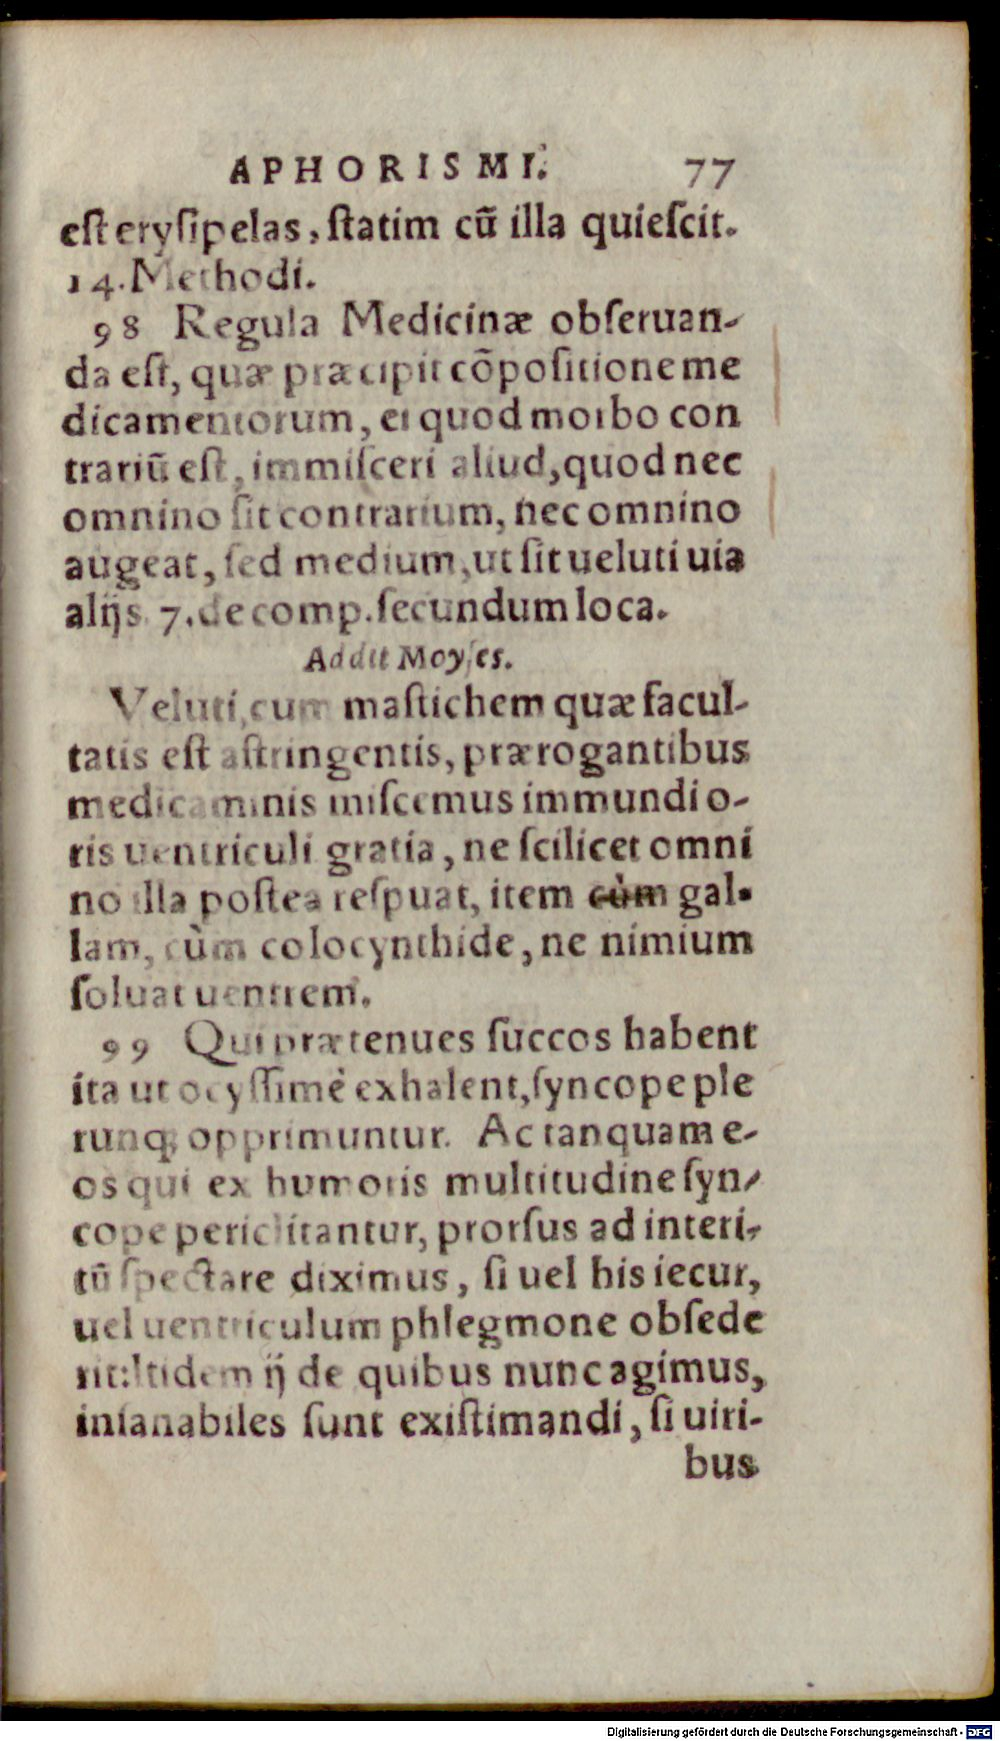 APHORISMI. 77
est erysipelas, statim cū illa quiescit.
14. Methodi.
98 Regula Medicinæ obseruan-
da est, quæ præcipit cōpositione me
dicamentorum, ei quod morbo con
trariū est, immisceri aliud, quod nec
omnino sit contrarium, nec omnino
augeat, sed medium, ut sit ueluti uia
alijs 7. de comp. secundum loca.
Addit Moyses.
Veluti, cum mastichem quæ facul-
tatis est astringentis, prærogantibus
medicaminis miscemus immundi o-
ris uentriculi gratia, ne scilicet omni
no illa postea respuat, item cùm gal-
lam, cùm colocynthide, ne nimium
soluat uentrem.
99 Qui prætenues succos habent
ita ut ocyssimè exhalent, syncope ple
runq; opprimuntur. Ac tanquam e-
os qui ex humoris multitudine syn-
cope periclitantur, prorsus ad interi-
tū spectare diximus, si uel his iecur,
uel uentriculum phlegmone obsede
rit: Itidem ij de quibus nunc agimus,
insanabiles sunt existimandi, si uiri-
bus
Digitalisierung gefördert durch die Deutsche Forschungsgemeinschaft - DFG